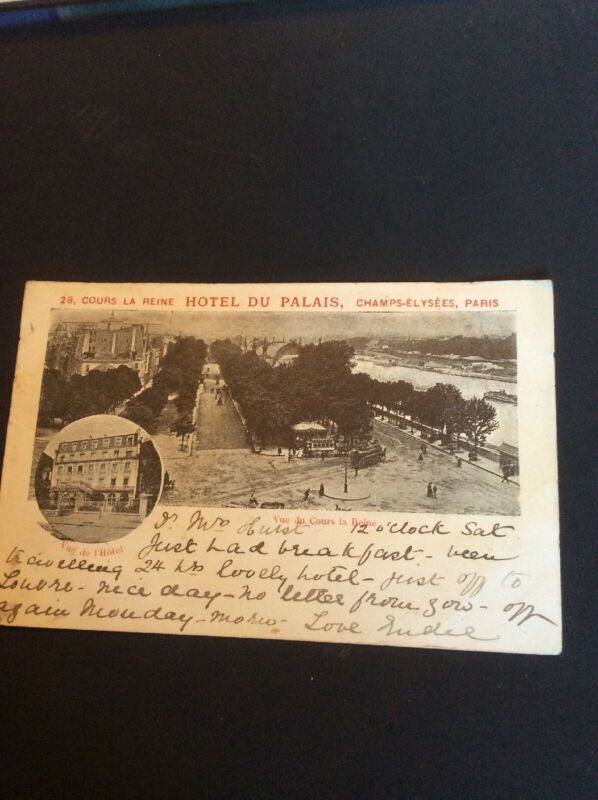 28, COURS LA REINE HOTEL DU PALAIS, CHAMPS-ÉLYSÉES, PARIS
Vue du Cours la Reine
Vue de l'Hôtel
Dr Mrs Hulst 12 o'clock Sat
Just had breakfast - been
travelling 24 hrs lovely hotel - just off to
Louvre - nice day - no letter from you - off
again Monday - morn - Love